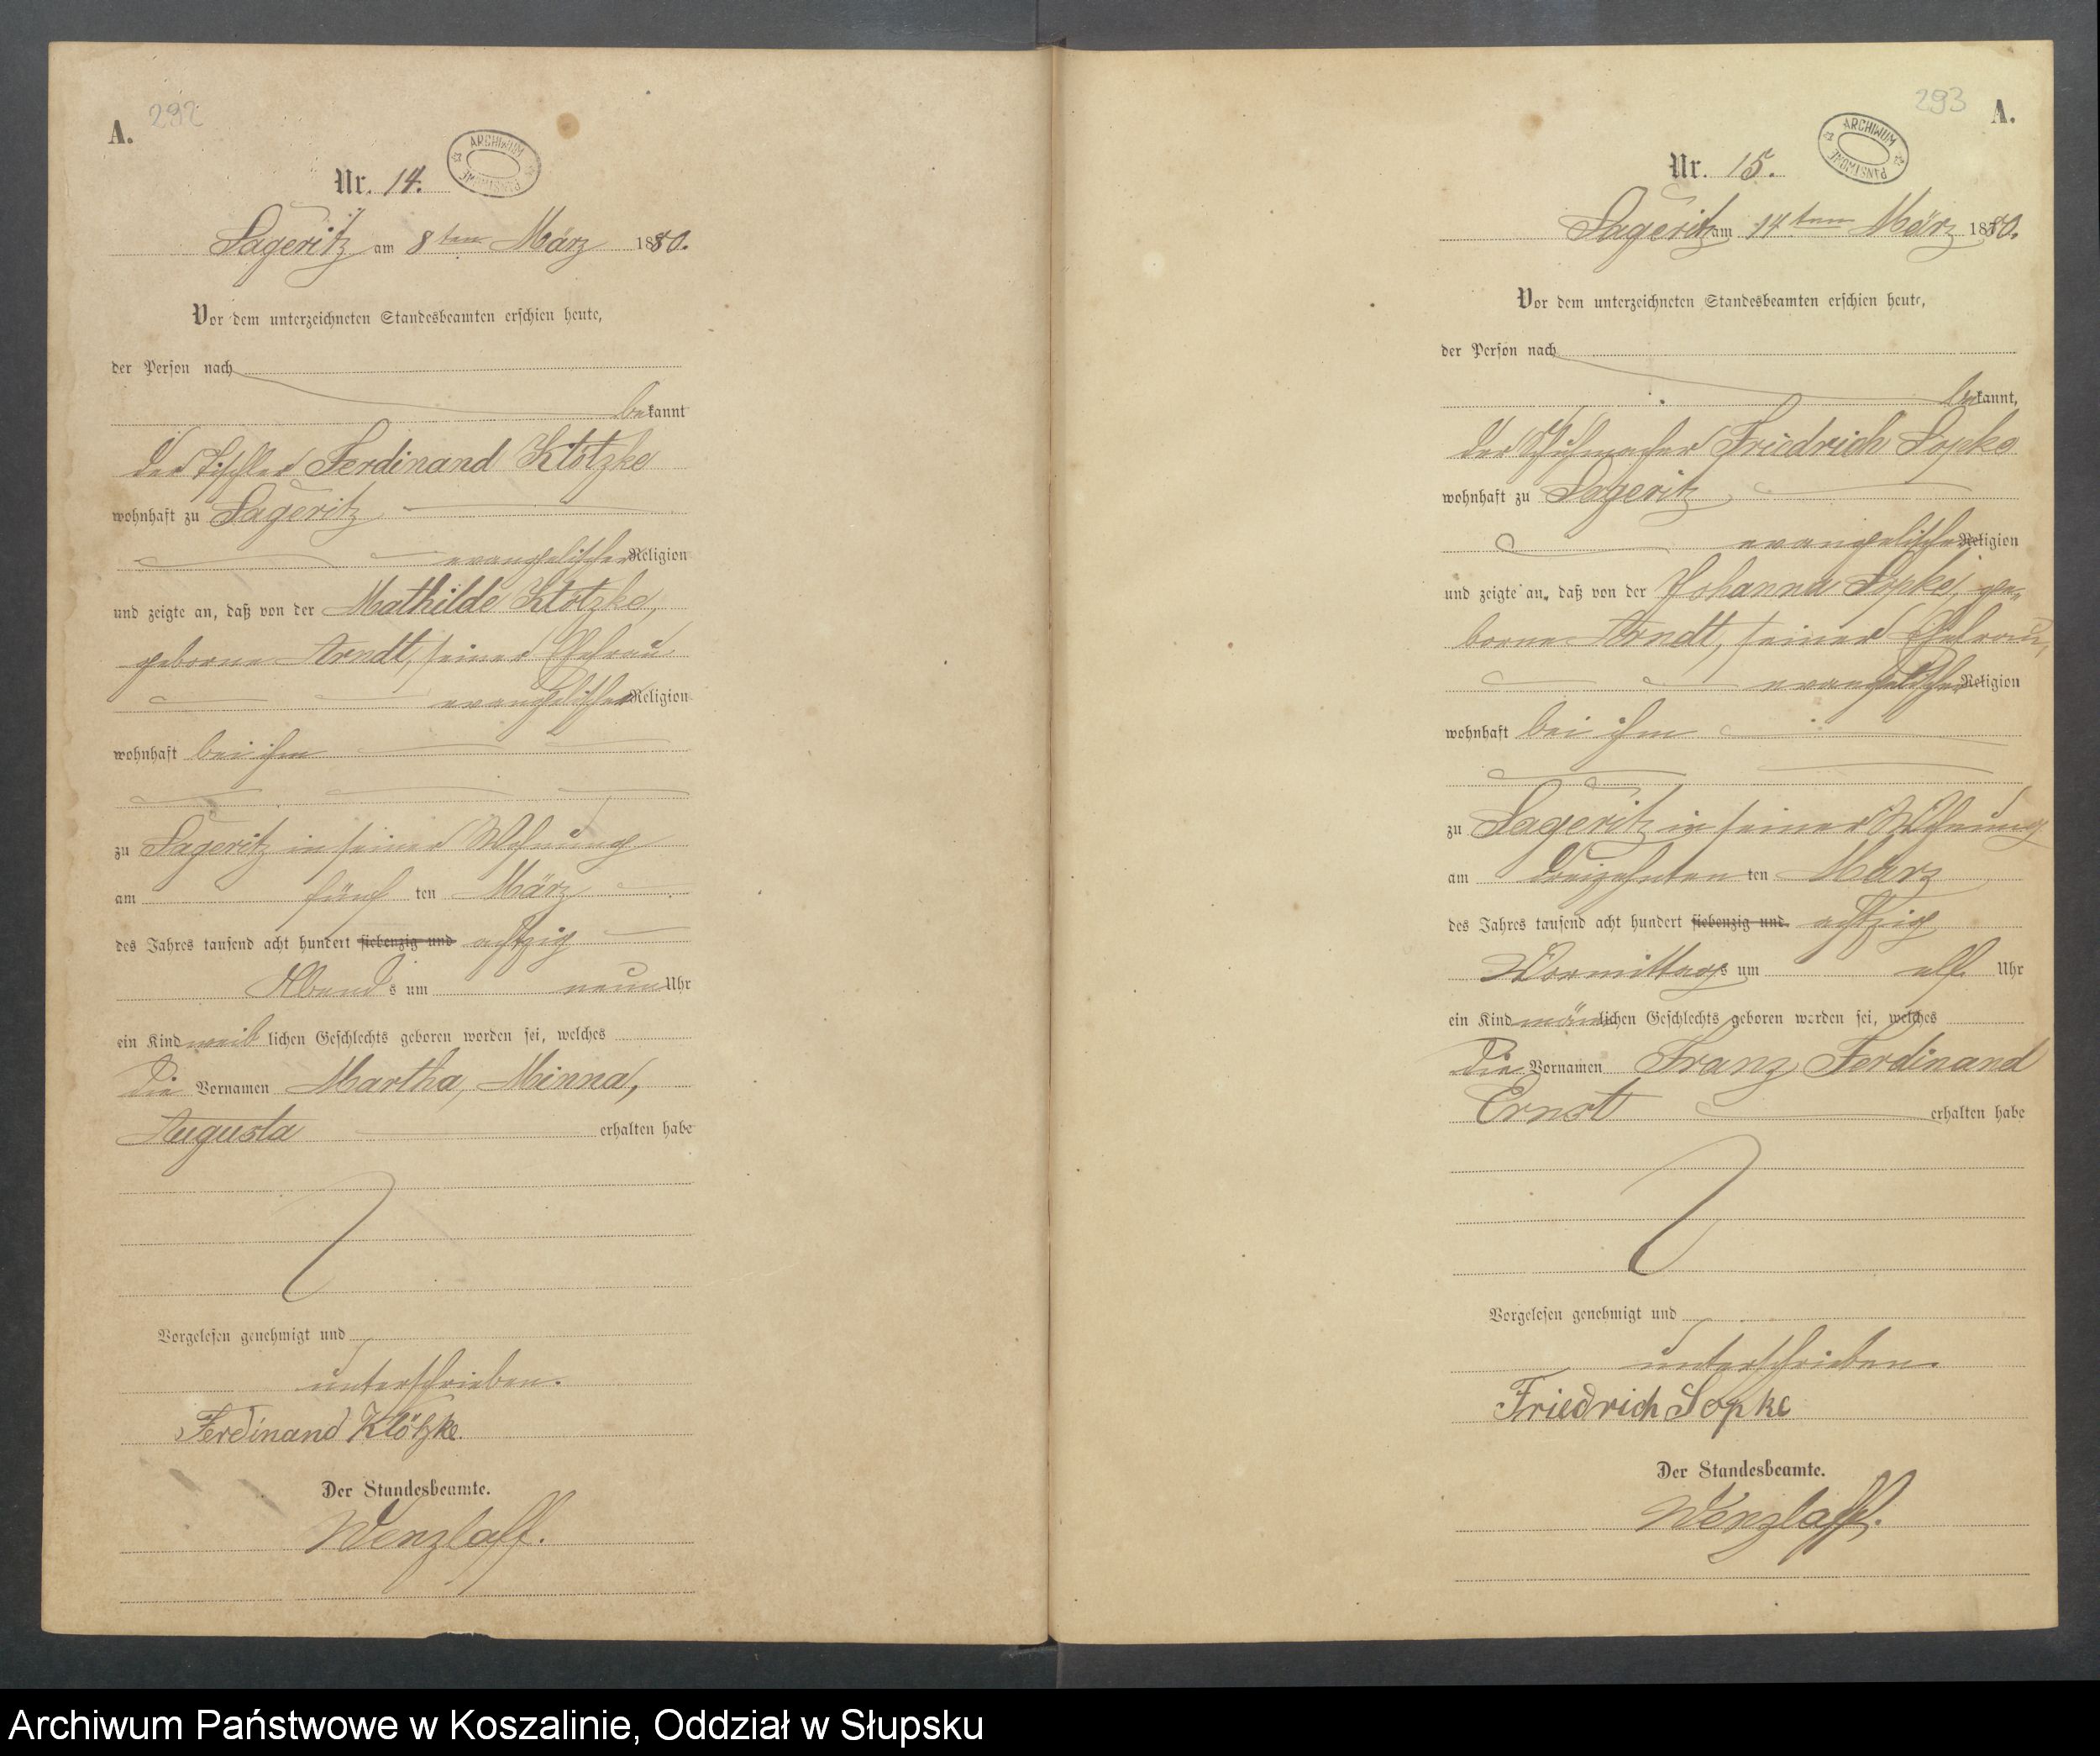 A. 292
ARCHIWUM PAŃSTWOWE
Nr. 14.
Sageritz am 8ten März 1880.
Vor dem unterzeichneten Standesbeamten erschien heute,
der Person nach
bekannt
der Tischler Ferdinand Klötzke
wohnhaft zu Sageritz,
evangelischer Religion
und zeigte an, daß von der Mathilde Klötzke,
geborne Arndt, seiner Ehefrau
evangelischer Religion
wohnhaft bei ihm
zu Sageritz in seiner Wohnung
am fünf ten März
des Jahres tausend acht hundert siebenzig und achtzig
Abends um neun Uhr
ein Kind weiblichen Geschlechts geboren worden sei, welches
die Vornamen Martha, Minna,
Augusta erhalten habe
Vorgelesen genehmigt und
unterschrieben.
Ferdinand Klötzke.
Der Standesbeamte.
Wenzlaff.
293 A.
ARCHIWUM PAŃSTWOWE
Nr. 15.
Sageritz am 14ten März 1880.
Vor dem unterzeichneten Standesbeamten erschien heute,
der Person nach
bekannt,
der Schuhmacher Friedrich Sopke
wohnhaft zu Sageritz,
evangelischer Religion
und zeigte an, daß von der Johanna Sopke, ge-
borne Arndt, seiner Ehefrau,
evangelischer Religion
wohnhaft bei ihm
zu Sageritz in seiner Wohnung
am dreizehnten ten März
des Jahres tausend acht hundert siebenzig und achtzig
Vormittags um elf Uhr
ein Kind männlichen Geschlechts geboren worden sei, welches
die Vornamen Franz Ferdinand
Ernst erhalten habe
Vorgelesen genehmigt und
unterschrieben.
Friedrich Sopke
Der Standesbeamte.
Wenzlaff.
Archiwum Państwowe w Koszalinie, Oddział w Słupsku